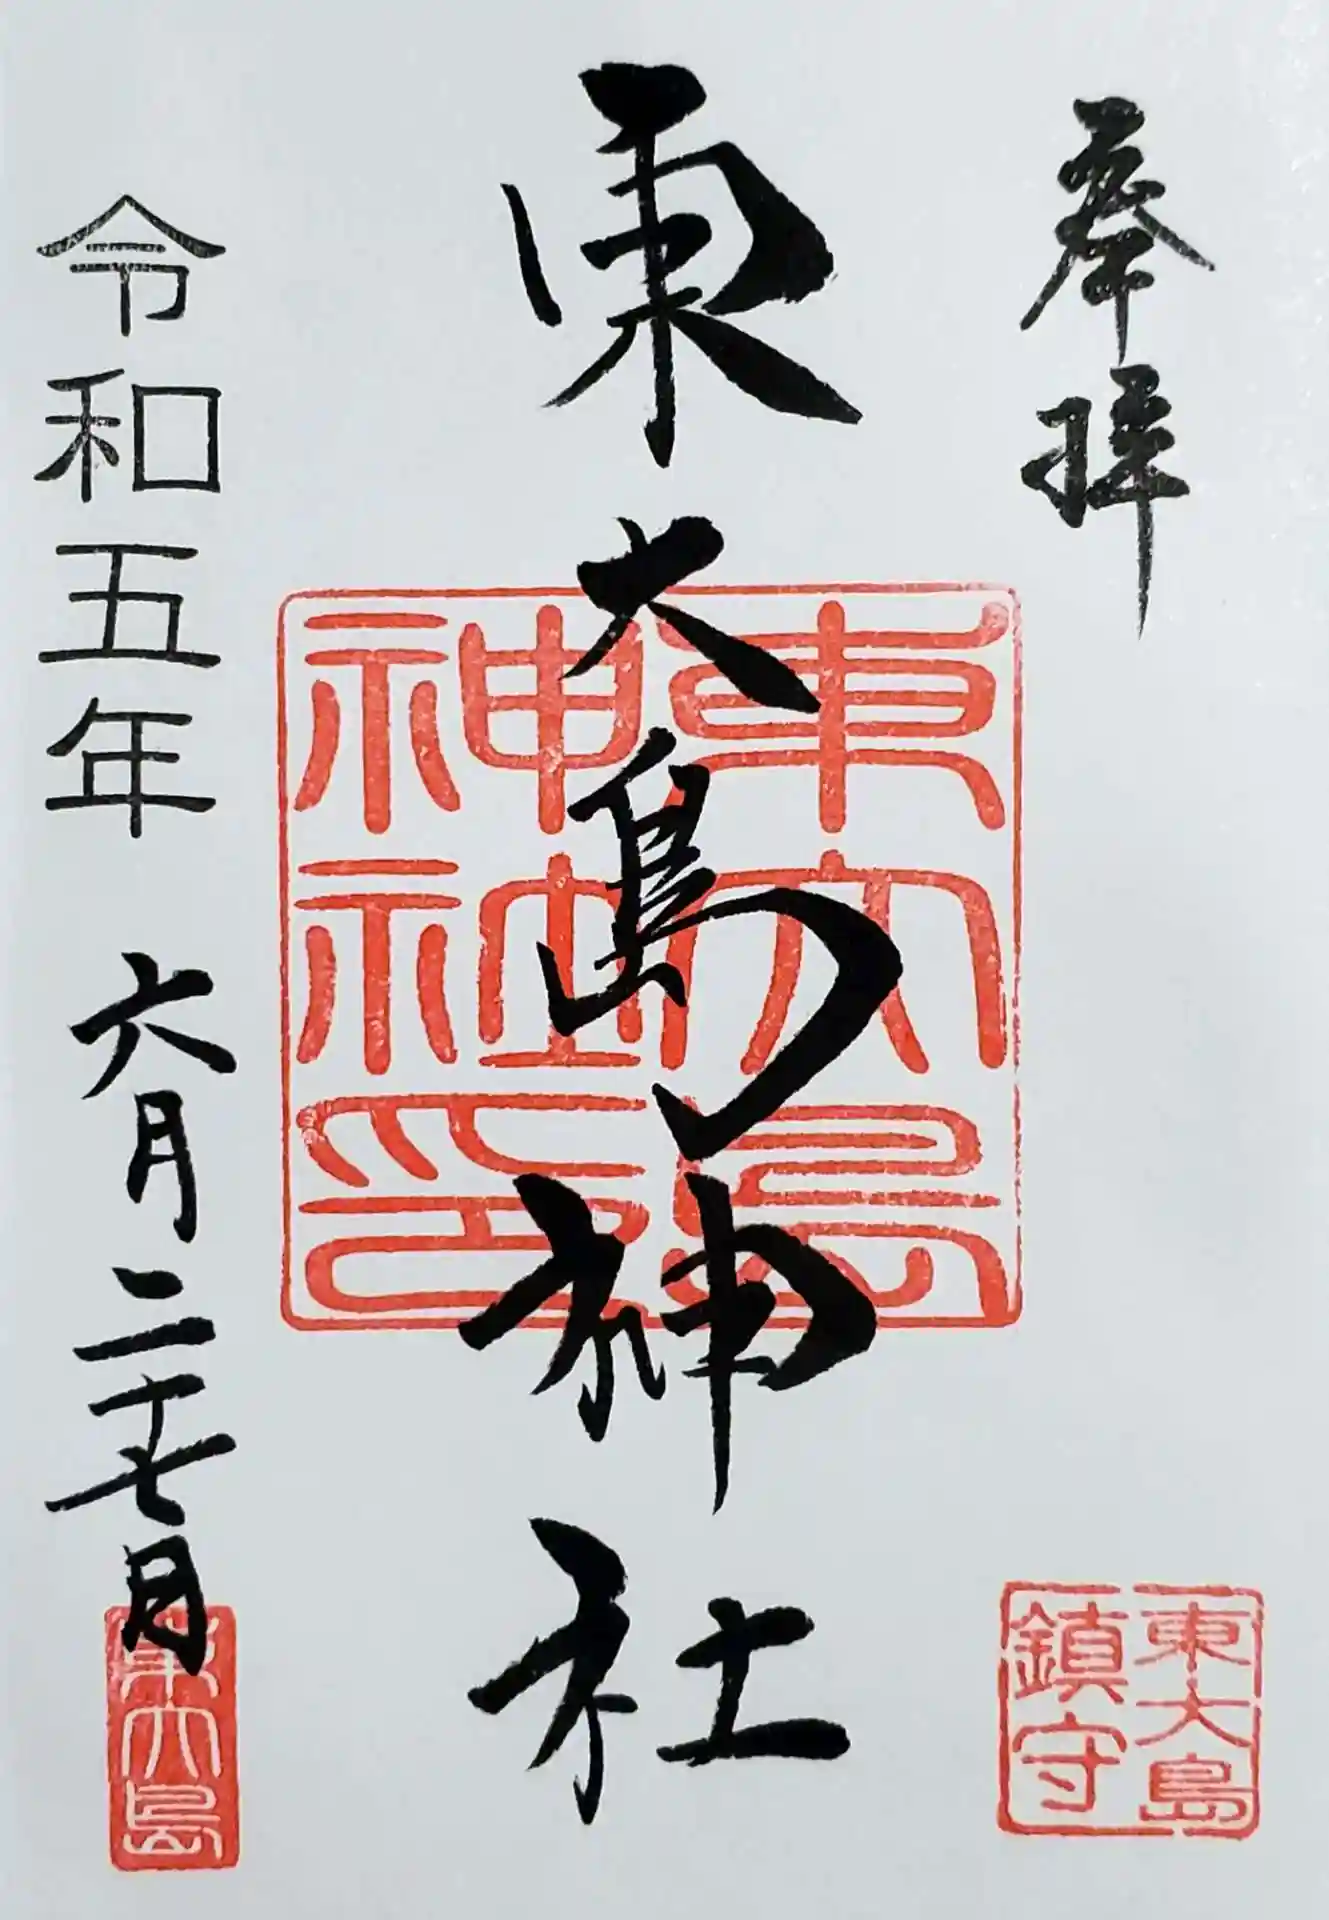 奉拝
東大島
鎮守
東大島神社
東大島
神社印
令和五年 六月二十七日
東大島